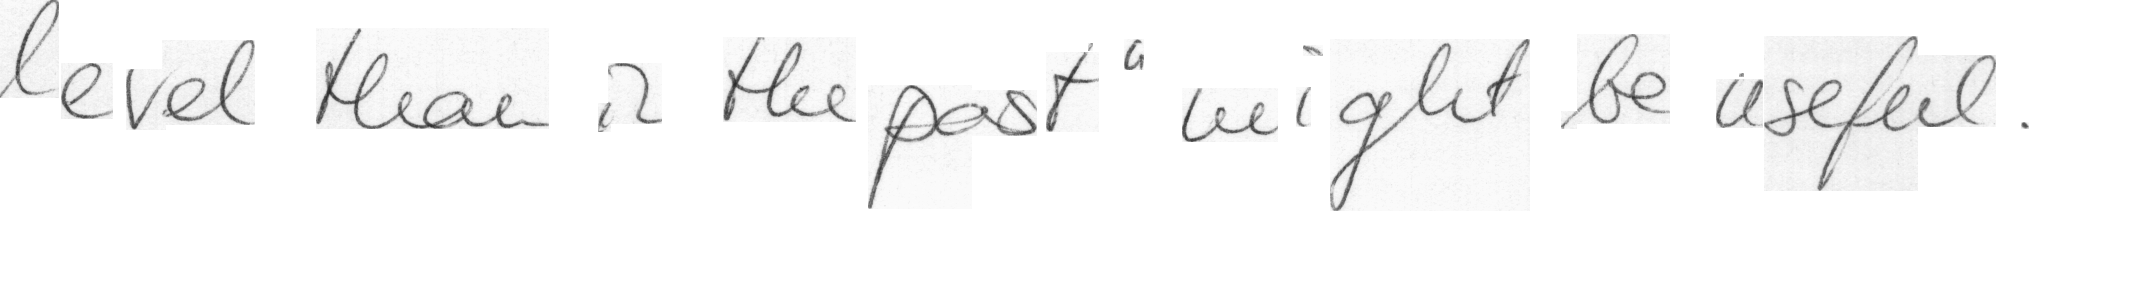 level than in the past" might be useful.